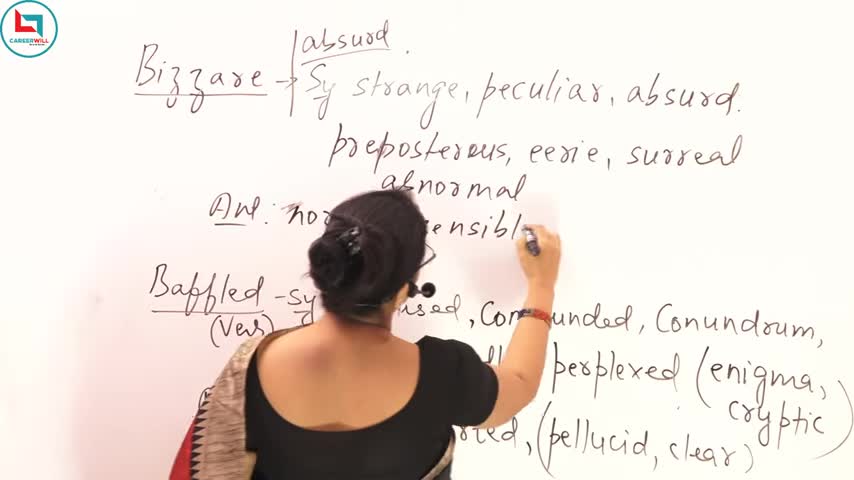 CAREERWILL
absurd.
Bizzare → Sy strange, peculiar, absurd.
preposterous, eerie, surreal
abnormal
Ant: nor ensibl
Baffled - Sy used, Confounded, Conundrum,
(Verb) perplexed (enigma,
cryptic)
rted, (pellucid, clear)